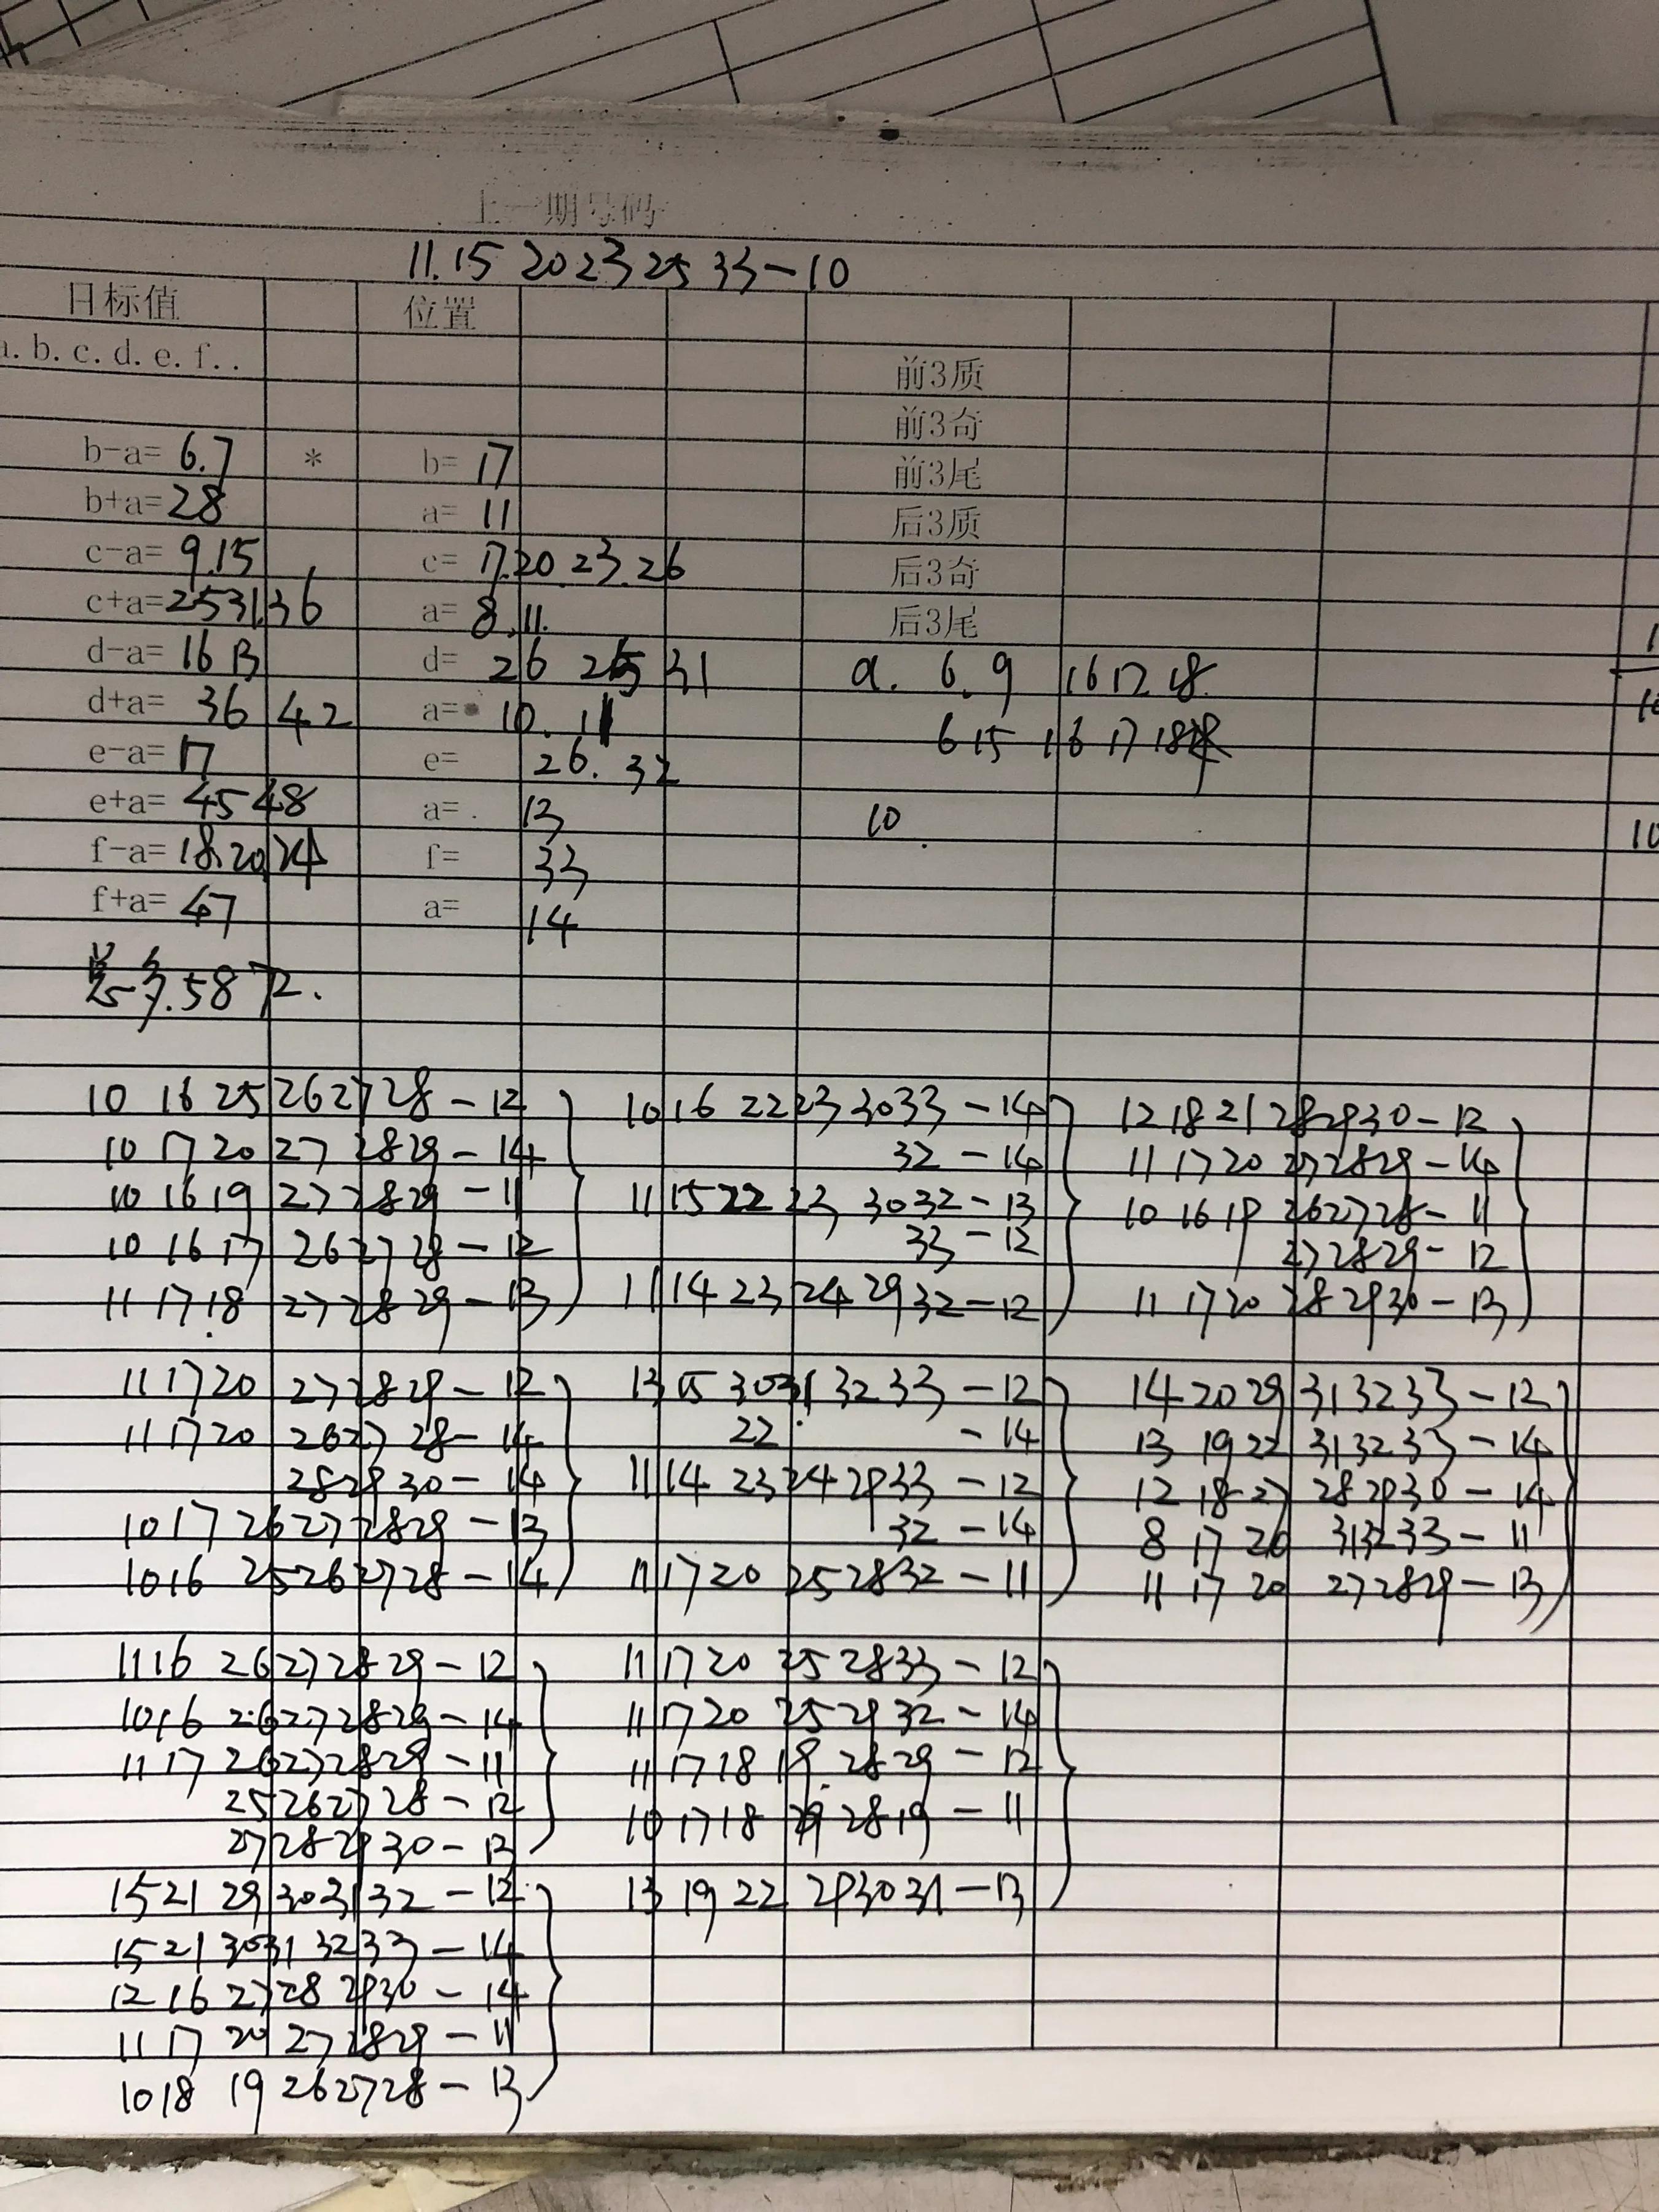 上一期号码
11.15 20 23 25 33-10
目标值 位置
a.b.c.d.e.f.. 前3质
前3奇
b-a= 6.7 * b= 17 前3尾
b+a= 28 a= 11 后3质
c-a= 9.15 c= 17.20.23.26 后3奇
c+a= 25 31.36 a= 8.11. 后3尾
d-a= 16 13 d= 26 25 31 a. 6.9 16 17 18
d+a= 36 42 a= 10.11 6 15 16 17 18
e-a= 17 e= 26.32
e+a= 45 48 a= 13 10
f-a= 18.20.24 f= 33 10
f+a= 47 a= 14
58 72.
10 16 25 26 27 28-12
10 17 20 27 28 29-14
10 16 19 27 28 29-11
10 16 17 26 27 28-12
11 17 18 27 28 29-13
10 16 22 23 30 33-14
32-14
11 15 22 23 30 32-13
33-12
11 14 23 24 29 32-12
12 18 21 28 29 30-12
11 17 20 27 28 29-14
10 16 19 26 27 28-11
27 28 29-12
11 17 20 28 29 30-13
11 17 20 27 28 29-12
11 17 20 26 27 28-14
28 29 30-14
10 17 26 27 28 29-13
10 16 25 26 27 28-14
13 15 30 31 32 33-12
22 -14
11 14 23 24 29 33-12
32-14
11 17 20 25 28 32-11
14 20 29 31 32 33-12
13 19 22 31 32 33-14
12 18 27 28 29 30-14
8 17 26 31 32 33-11
11 17 20 27 28 29-13
11 16 26 27 28 29-12
10 16 26 27 28 29-14
11 17 26 27 28 29-11
25 26 27 28-12
27 28 29 30-13
11 17 20 25 28 33-12
11 17 20 25 29 32-14
11 17 18 19 28 29-12
10 17 18 28 19-11
13 19 22 29 30 31-13
15 21 29 30 31 32-12
15 21 30 31 32 33-14
12 16 27 28 29 30-14
11 17 20 27 28 29-11
10 18 19 26 27 28-13